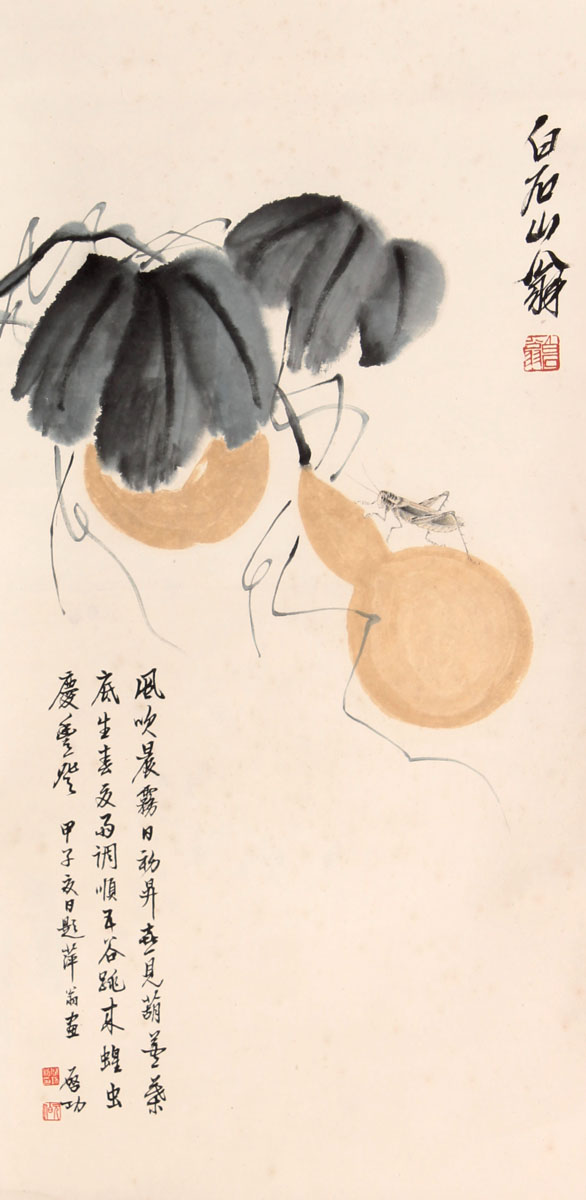 白石山翁
風吹晨霧日初昇喜見葫蘆葉
底生春夏雨調順五谷跳来蝗虫
慶豐登 甲子夏日題萍翁畫 啓功